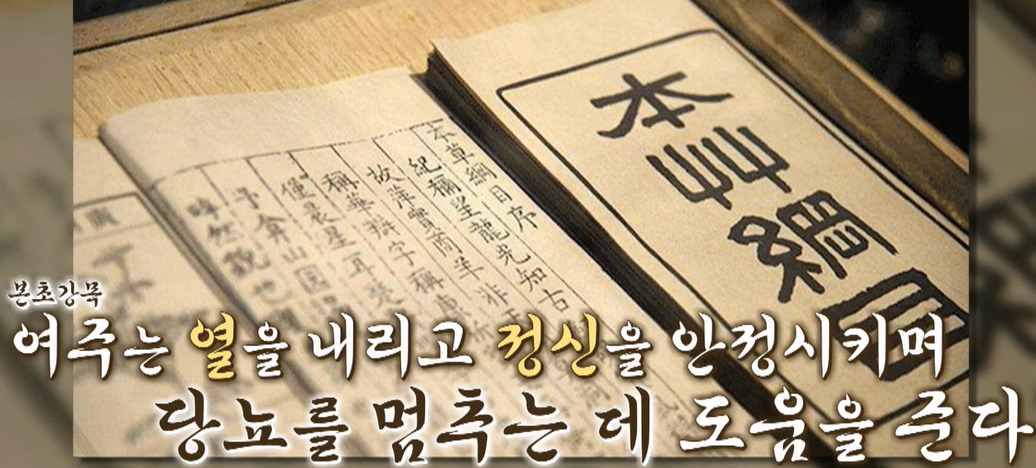 本草綱目
本草綱目序
紀稱望龍光知古
故萍實商羊非
稱華辨字稱
僅晨星耳
予弇山園
然貌也
본초강목
여주는 열을 내리고 정신을 안정시키며
당뇨를 멈추는 데 도움을 준다